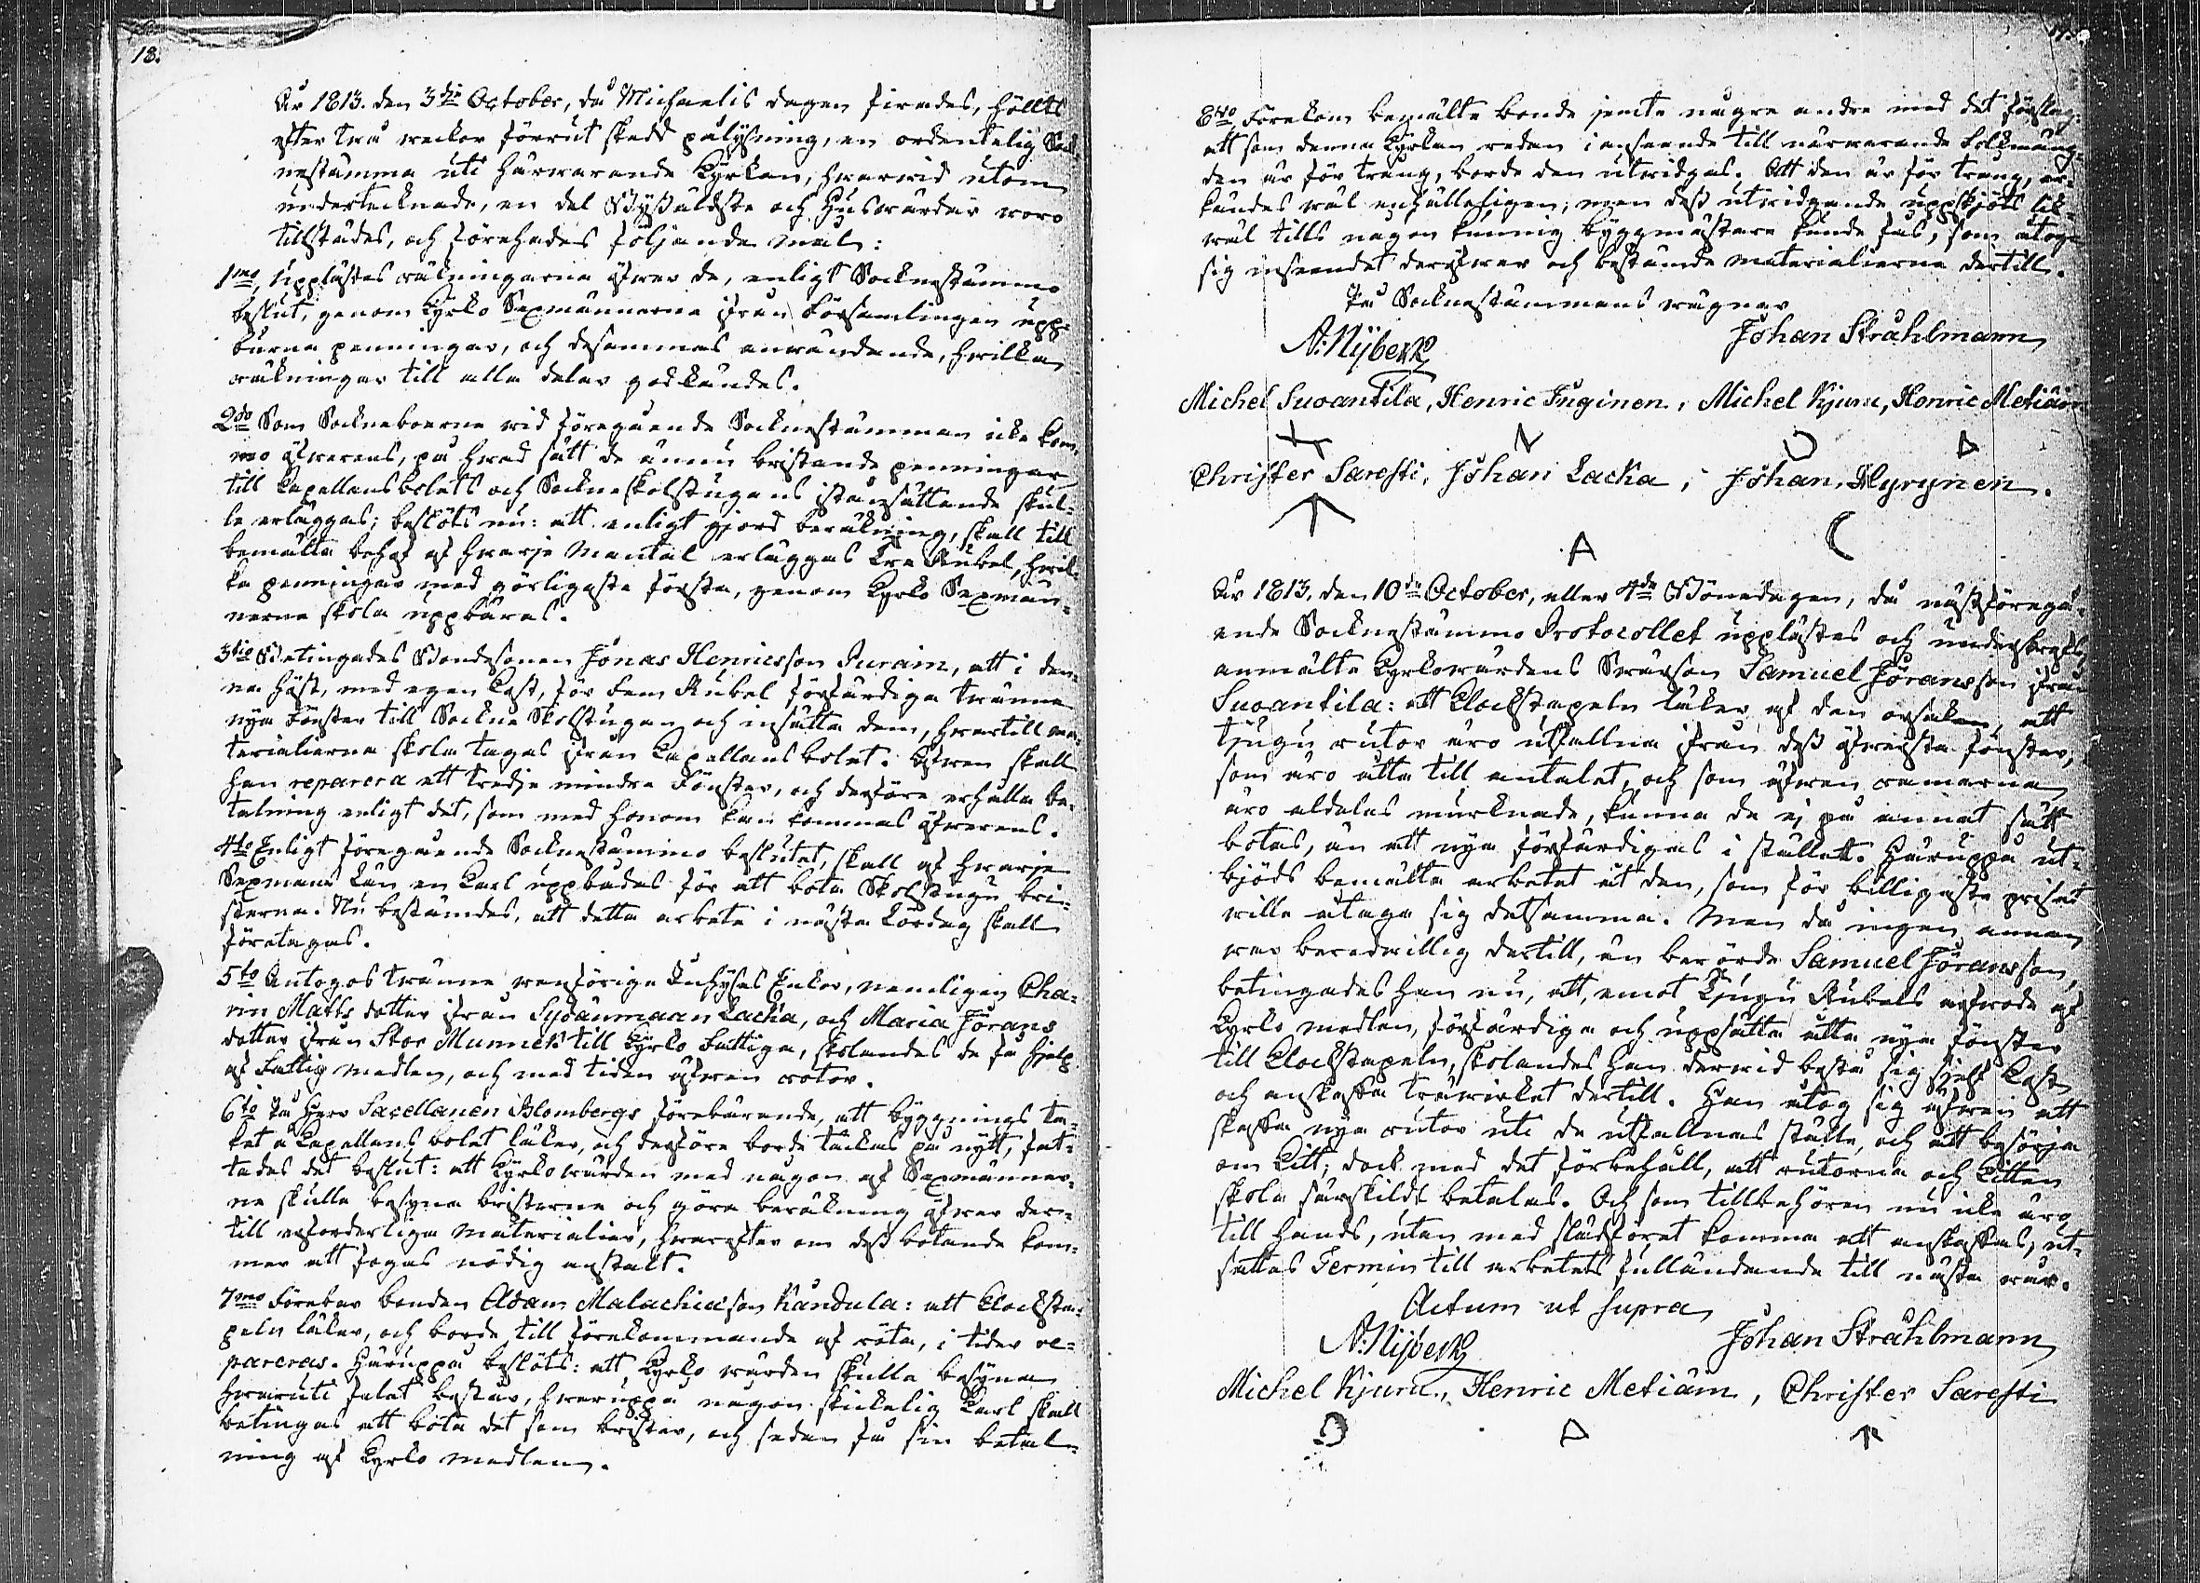 18.
År 1813. den 3die October, då Michaelis dagen firades, hölltz
efter twå weckor förrut skedd pålysning, en ordentelig Sock-
nestämma uti härwarande Kyrkan, hwarwid utom
undertecknade, en del Byßäldste och Huswärdar woro
tillstädes, och förehades följande mål:
1mo, Upplästes räkningarna öfwer de, enligt Socknestämmo
beslut, genom Kyrko Sexmännerna ifrån Församlingen upp-
burna penningar, och desammas anwändande, hwilka
räkningar till alla delar godkändes.
2do Som Sockneboerne wid föregående Socknestämman icke kom-
mo öfwerens, på hwad sätt de ännu bristande penningar
till Capellansbolets och Sockneskolstugans iståndsättande skul-
le erläggas; beslöts nu: att enligt gjord beräkning, skall till
bemälta behof af hwarje Mantal erläggas Tre Rubel, hwil-
ka penningar med görligaste första, genom Kyrko Sexmän-
nerna skola uppbäras.
3tio Betingades Bondesonen Jonas Henricsson Purain, att i den-
na höst, med egen Kost, för Fem Rubel förfärdiga twänne
nya Fönster till Sockne Skolstugan och insätta dem, hwartill ma-
terialierna skola tagas ifrån Capellansbolet. Äfwen skall
han reparera ett tredje mindre Fönster, och derföre erhålla be-
talning enligt det, som med honom kan kommas öfwerens.
4to Enligt föregående Socknestämmo beslutet, skall af hwarje
Sexmans Län en Karl uppbådas för att bota Skolstugu bri-
sterna. Nu bestämdes, att detta arbete i nästa Lördag skall
företagas.
5to Antogos twänne wanförige Inhyses Enkor, nemligen Cha-
rin Matts dotter ifrån Sydänmaan Lacka, och Maria Jörans
dotter ifrån Stor Munnek till Kyrko Fattiga, skolandes de få hjelp
af Fattig medlen, och med tiden äfwen rotar.
6to På Herr Sacellanen Blombergs förebärande, att byggnings ta-
ket å Capellans bolet läker, och derföre borde täckas på nytt, fat-
tades det beslut: att Kyrkowärden med någon af Sexmänner-
ne skulle besyna bristerna och göra beräkning öfwer der-
till erforderliga Materialier, hwarefter om deß botande kom-
mer att fogas nödig anstalt.
7mo Förebar bonden Adam Malachiasson Kandula: att Klocksta-
peln läker, och borde till förekommande af röta, i tider re-
pareras. Häruppå beslöts: att Kyrko wärden skulle besyna
hwaruti felet består, hwaruppå någon skickelig Karl skall
betingas att bota det som brister, och sedan få sin betal-
ning af Kyrko medlen.
8vo Förekom bemälte bonde jemte någre andre med det förslag,
att som denna Kyrkan redan i anseende till närwarande Folkmäng-
den är för trång, borde den utwidgas. Att den är för trång, er-
kändes wäl enhälleligen; men deß utwidgande uppskjöts lik-
wäl tills någon kunnig byggmästare kunde fås, som åtoge
sig inseendet deröfwer och bestämde materialierna dertill.
På Socknestämmans wägnar
A: Nyberg
Johan Strahlmann
Michel Suoantila, Henric Inginen, Michel Kjuru, Henric Metiäin
Christer Saresti, Johan Lacka, Johan Hyrynen.
År 1813, den 10de October, eller 4de Bönedagen, då nästföregå-
ende Socknestämmo Protocollet upplästes och underskrefs,
anmälte Kyrkowärdens Swärson Samuel Jöransson ifrån
Suoantila: att Klockstapeln läker af den orsaken, att
tjugu rutor äro utfallna ifrån deß öfwersta fönster,
som äro åtta till antalet, och som äfwen ramarna
äro aldeles murknade, kunna de ej på annat sätt
botas, än att nya förfärdigas i stället. Häruppå ut-
bjöds bemälta arbetet åt den, som för billigaste priset
wille åtaga sig detsamma. Men då ingen annan
war beredwillig dertill, än berörde Samuel Jöransson,
betingades han nu, att, emot Tjugu Rubels arfwode af
Kyrko medlen, förfärdiga och uppsätta åtta nya fönster
till Klockstapeln, skolandes han derwid bestå sig sjelf Kost
och anskaffa träwirket dertill. Han åtog sig äfwen att
skaffa nya rutor uti de utfallnas ställe, och att besörja
om Kitt; dock med det förbehåll, att rutorna och Kitten
skola särskildt betalas. Och som tillbehören nu icke äro
till hands, utan med slädföret komma att anskaffas, ut-
sattes Termin till arbetets fulländande till nästa wår.
Actum ut supra
A: Nyberg
Johan Strahlmann
Michel Kjuru, Henric Metiäin, Christer Saresti